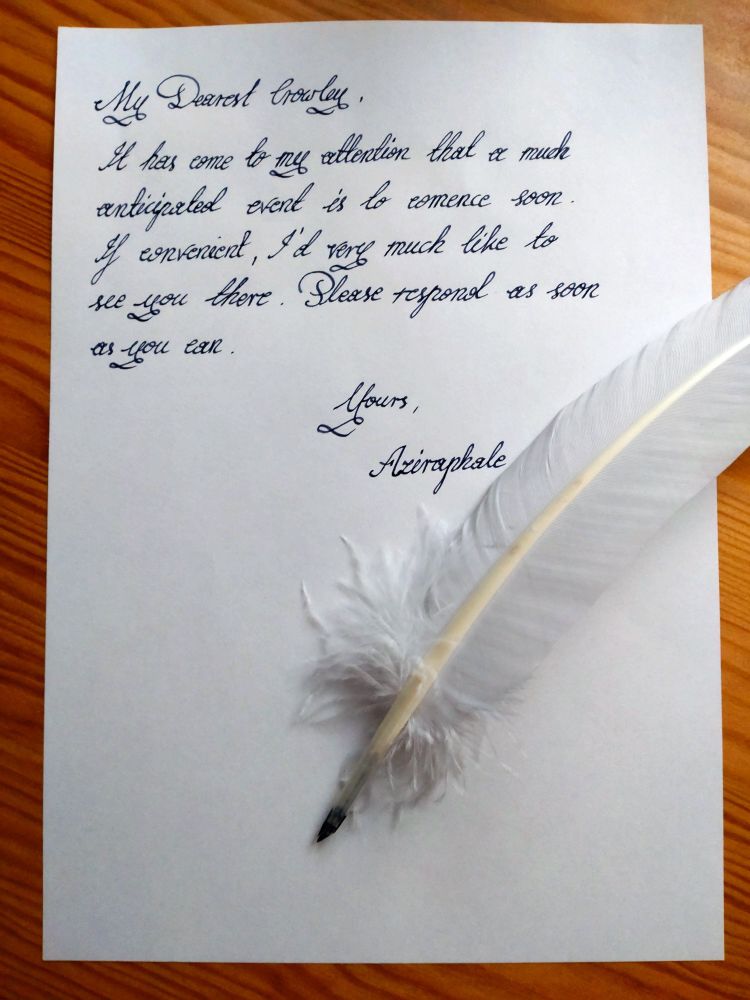 My Dearest Crowley,
It has come to my attention that a much
anticipated event is to comence soon.
If convenient, I'd very much like to
see you there. Please respond as soon
as you can.
Yours,
Aziraphale